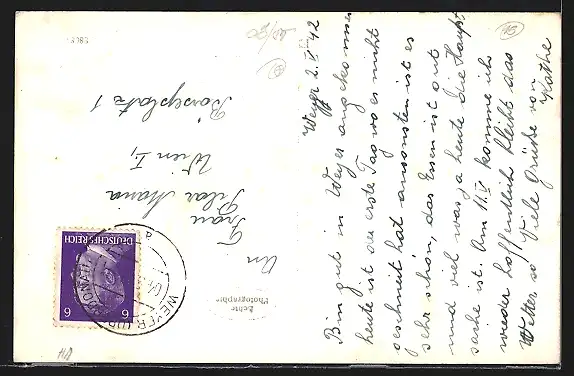 Weyer 2.V.42
Bin gut in Weyer angekommen
heute ist der erste Tag wo es nicht
geschneit hat ansonsten ist es
sehr schön, das Essen ist gut
und viel was ja heute die Haupt-
sache ist. Am 11.V. komme ich
wieder hoffentlich bleibt das
Wetter so Viele Grüße von
Käthe
An
Frau
Pilar Maria
Wien I,
Börseplatz 1
Echte
Photographie
DEUTSCHES REICH
6 6
WEYER